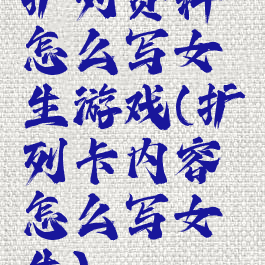 扩列资料
怎么写女
生游戏(扩
列卡内容
怎么写女
生)